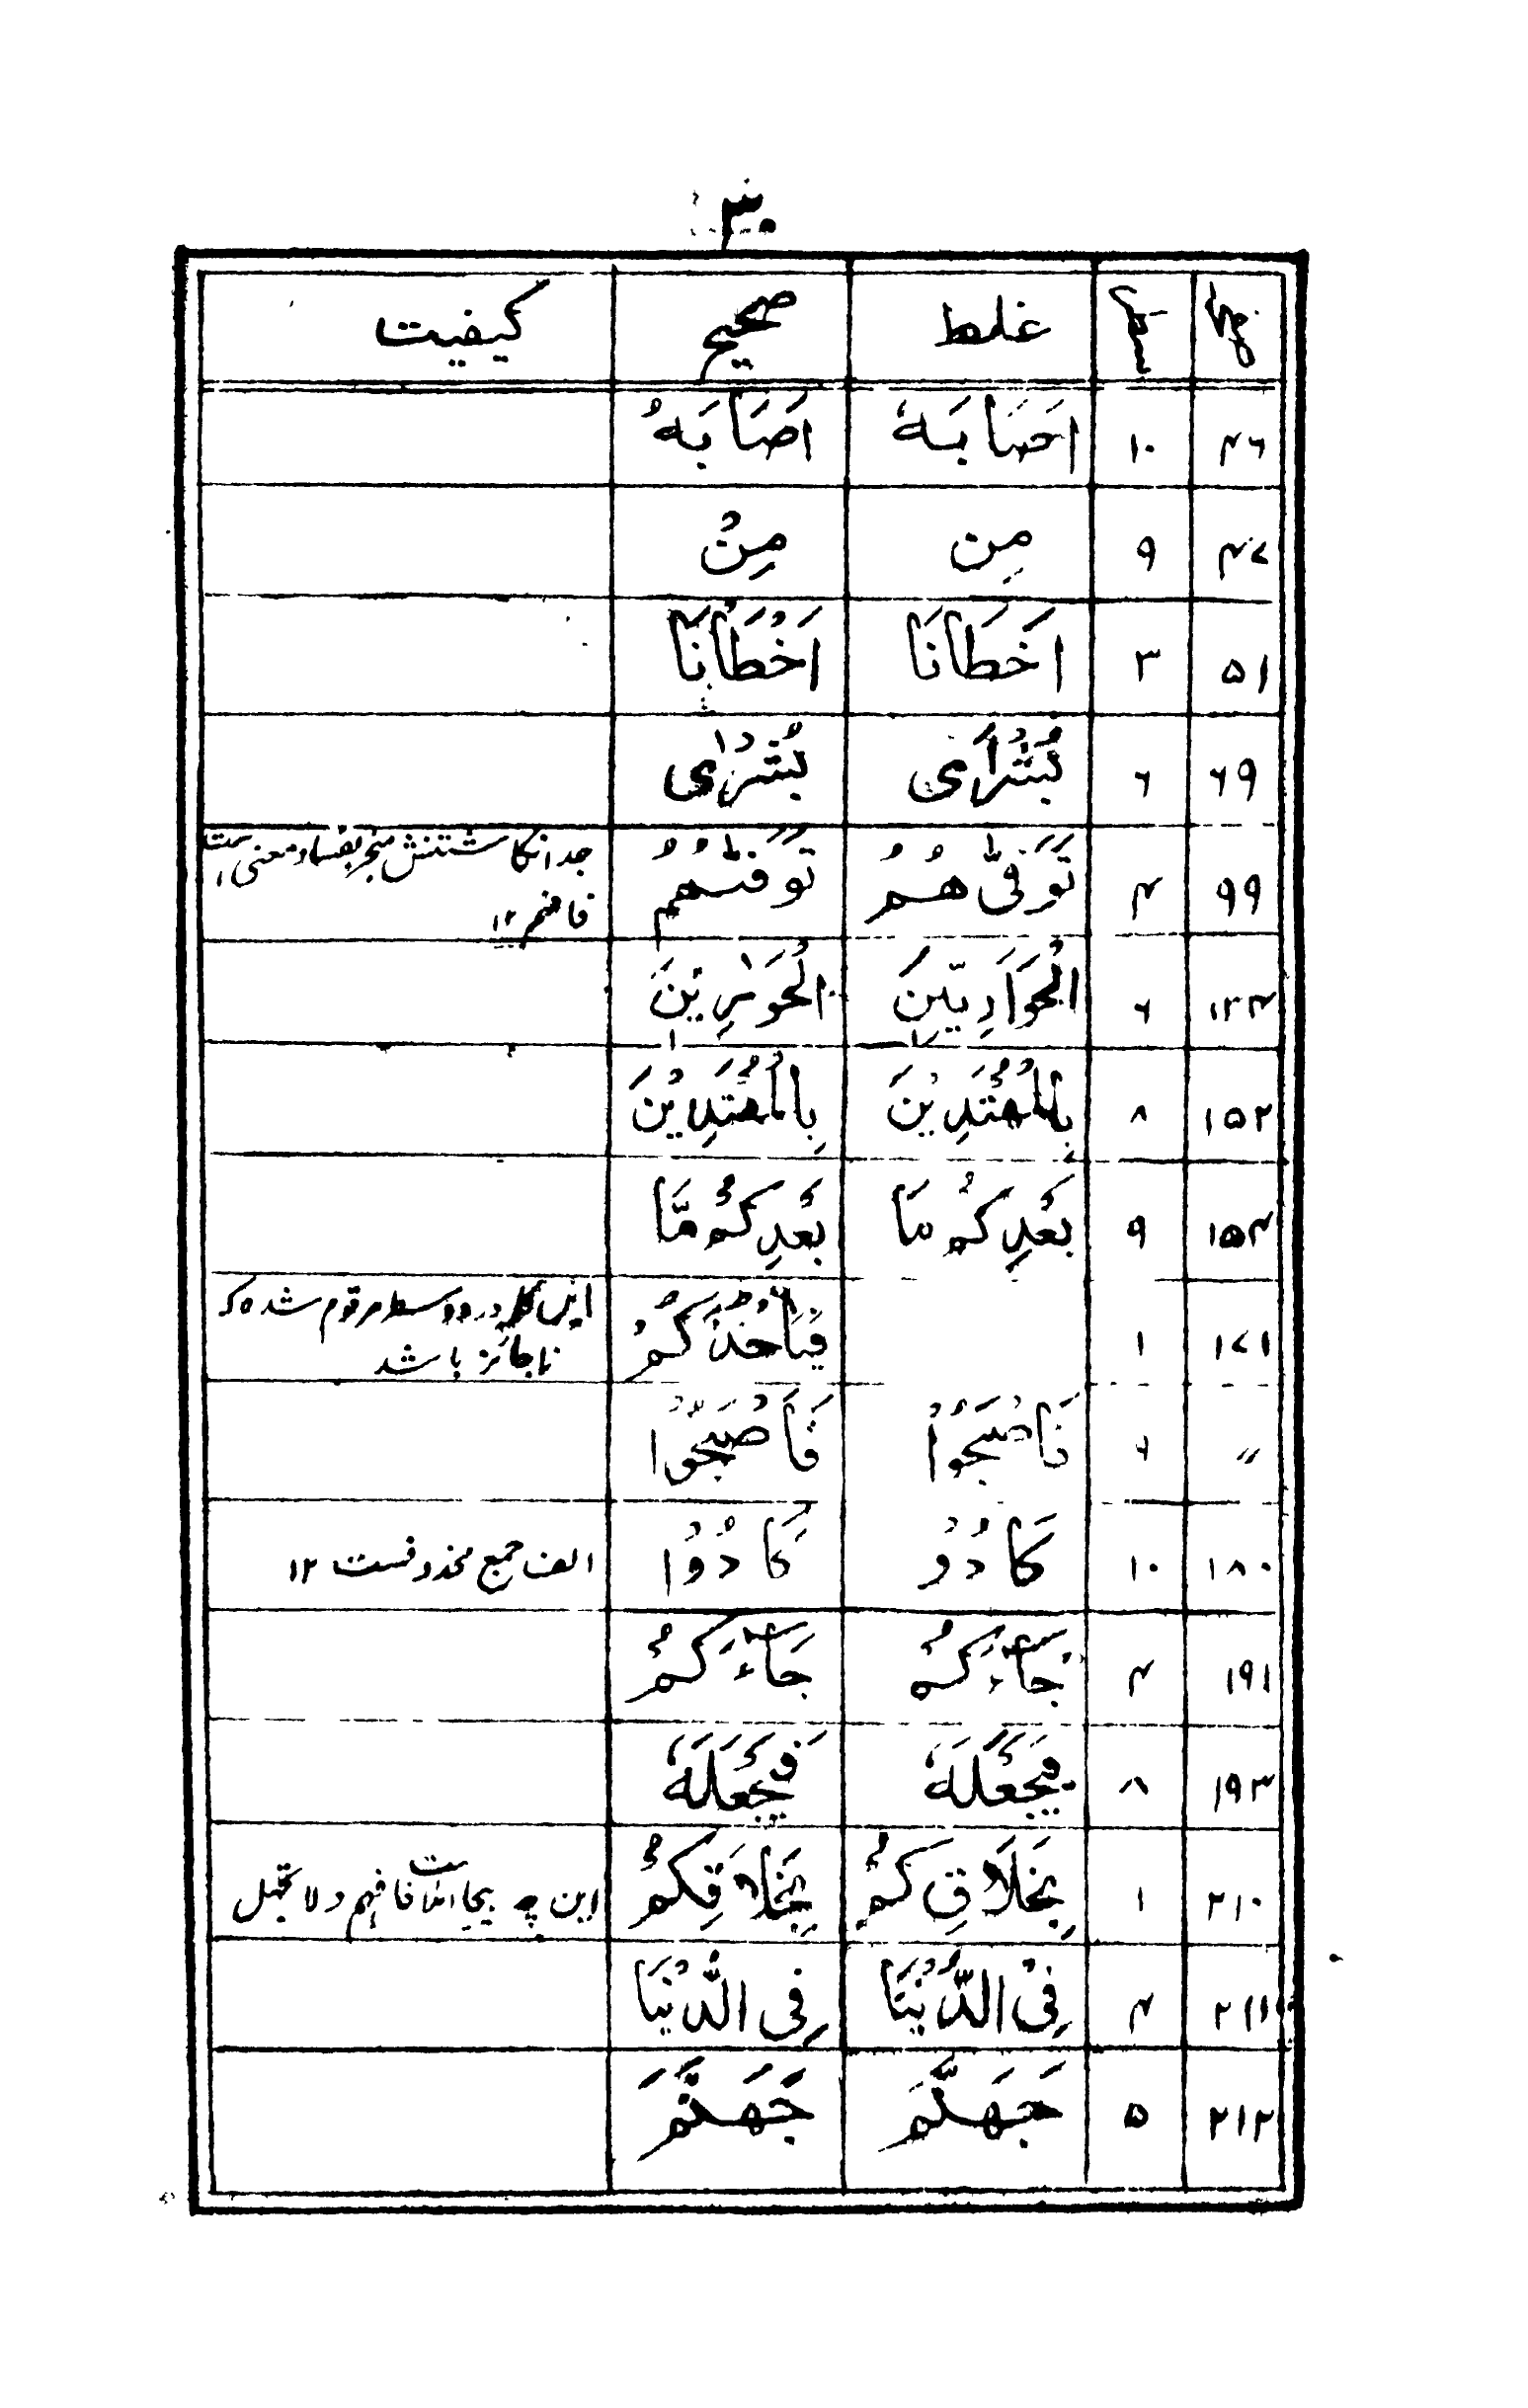 ۳۰
صفحہ سطر غلط صحیح کیفیت
۴۶ ۱۰ اَصَابَہٗ اَصَابَہُ
۴۷ ۹ مِن مِنْ
۵۱ ۳ اَخَطَانَا اَخْطَاْنَا
۶۹ ۶ بُشْرٰی بُشْرٰی
۹۹ ۴ تَوَفّٰی ھُمُ تَوَفّٰىهُمُ جدا نگاشتنش منجر بفساد معنی است
فافہم ۱۲
۱۳۴ ۶ الْحَوَارِيّٖنَ الْحَوٰرِيّٖنَ
۱۵۲ ۸ بِالْمُهْتَدِيْنَ بِالْمُهْتَدِيْنَ
۱۵۴ ۹ بَعْدِكُمْ مَا بَعْدِكُمْ مَّا
۱۷۱ ۱ فَيَاْخُذَكُمْ این کلمہ در دو سطر مرقوم شدہ کہ
ناجائز باشد
〃 ۶ فَاَصْبَحُوْا فَاَصْبَحُوْا
۱۸۰ ۱۰ كَادُوْ كَادُوْا الف جمع محذوفست ۱۲
۱۹۱ ۴ جَآءَكُمْ جَآءَكُمْ
۱۹۳ ۸ فَيَجْعَلَهٗ فَيَجْعَلَهٗ
۲۱۰ ۱ بِخَلَاقِ كُمْ بِخَلَاقِكُمْ این چہ بیجا املا ست فافہم ولا تجہل
۲۱۱ ۴ فِیْ الدُّنْيَا فِی الدُّنْيَا
۲۱۲ ۵ جَهَنَّمَ جَهَنَّمَ